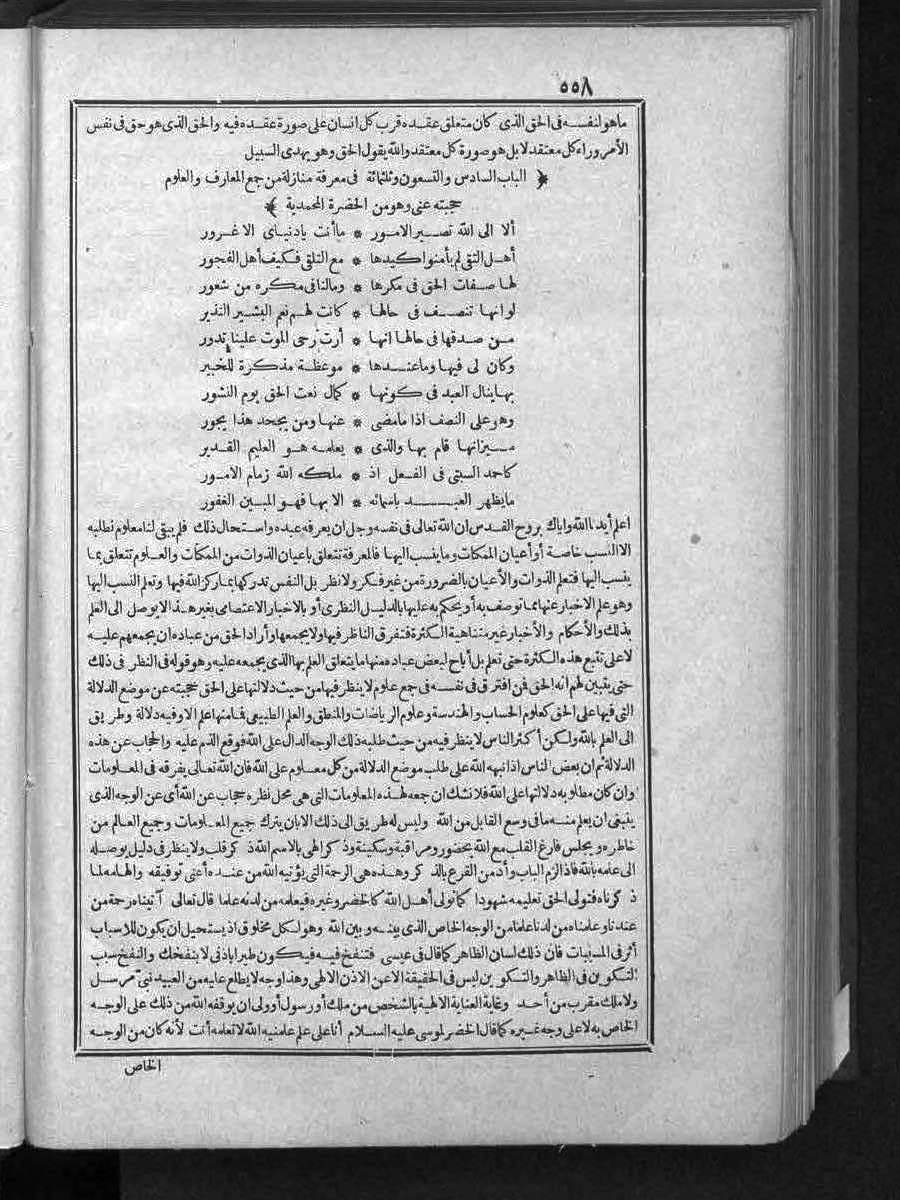 ٥٥٨
ما هو لنفسه فى الحق الذى كان متعلق عقده قرب كل انسان على صورة عقده فيه والحق الذى هو حق فى نفس
الأمر وراء كل معتقد لا بل هو صورة كل معتقد والله يقول الحق وهو يهدى السبيل
﴿ الباب السادس والتسعون وثلثمائة فى معرفة منازلة من جمع المعارف والعلوم
حجبته عنى وهو من الحضرة المحمدية ﴾
ألا الى الله تصير الامور * ما أنت يا دنياى الا غرور
أهل التقى لم يأمنوا كيدها * مع التلقى فكيف أهل الفجور
لها صفات الحق فى مكرها * وما لنا فى مكره من شعور
لو انها تنصف فى حالها * كانت لهم نعم البشير النذير
من صدقها فى حالها انها * أرت رحى الموت علينا تدور
وكان لى فيها وما عندها * موعظة مذكرة للخبير
بها ينال العبد فى كونها * كمال نعت الحق يوم النشور
وهو على النصف اذا ما مضى * عنها ومن يجحد هذا يجور
ميزانها قام بها والذى * يعلمه هو العليم القدير
كاحمد السبتى فى الفعل اذ * ملكه الله زمام الامور
ما يظهر العبد باسمائه * الا بها فهو المبين الغفور
اعلم أيدنا الله واياك بروح القدس ان الله تعالى فى نفسه وجل ان يعرفه عبده واستحال ذلك فلم يبقى لنا معلوم نطلبه
الا النسب خاصة أو أعيان الممكنات وما ينسب اليها فالمعرفة تتعلق باعيان الذوات من الممكنات والعلوم تتعلق بما
ينسب اليها فتعلم الذوات والأعيان بالضرورة من غير فكر ولا نظر بل النفس تدركها بما ركز الله فيها وتعلم النسب اليها
وهو علم الاخبار عنها بما توصف به أو يحكم به عليها بالدليل النظرى أو بالاخبار الاعتصامى بغير هذا لا يوصل الى العلم
بذلك والأحكام والأخبار غير متناهية الكثرة فتفرق الناظر فيها ولا يجمعها وأراد الحق من عباده ان يجمعهم عليه
لا على تتبع هذه الكثرة حتى تعلم بل أباح لبعض عباده منها ما يتعلق العلم بها الذى يجمعه عليه وهو قوله فى النظر فى ذلك
حتى يتبين لهم انه الحق فمن افترق فى نفسه فى جمع علوم لا ينظر فيها من حيث دلالتها على الحق حجبته عن موضع الدلالة
التى فيها على الحق كعلوم الحساب والهندسة وعلوم الرياضات والمنطق والعلم الطبيعى فما منها علم الا وفيه دلالة وطريق
الى العلم بالله ولكن أكثر الناس لا ينظر فيه من حيث طلبه ذلك الوجه الدال على الله فوقع الذم عليه والحجاب عن هذه
الدلالة ثم ان بعض الناس اذا نبهه الله على طلب موضع الدلالة من كل معلوم على الله فان الله تعالى يفرقه فى المعلومات
وان كان مطلوبه دلالتها على الله فلا نشك ان جمعه لهذه المعلومات التى هى محل نظره حجاب عن الله أى عن الوجه الذى
ينبغى ان يعلم منه ما فى وسع القابل من الله وليس له طريق الى ذلك الا بان يترك جميع المعلومات وجميع العالم من
خاطره ويجلس فارغ القلب مع الله بحضور ومراقبة وسكينة وذكر الهى بالاسم الله ذكر قلب ولا ينظر فى دليل يوصله
الى علمه بالله فاذا لزم الباب وأدمن القرع بالذكر وهذه هى الرحمة التى يؤتيه الله من عنده أعنى توفيقه والهامه لما
ذكرناه فتولى الحق تعليمه شهودا كما تولى أهل الله كالخضر وغيره فيعلمه من لدنه علما قال تعالى آتيناه رحمة من
عندنا وعلمناه من لدنا علما من الوجه الخاص الذى بينه وبين الله وهو لكل مخلوق اذ يستحيل ان يكون للاسباب
أثر فى المسببات فان ذلك لسان الظاهر كما قال فى عيسى فتنفخ فيه فيكون طيرا باذنى لا بنفخك والنفخ سبب
التكوين فى الظاهر والتكوين ليس فى الحقيقة الا عن الاذن الالهى وهذا وجه لا يطلع عليه من العبيد نبى مرسل
ولا ملك مقرب من أحد وغاية العناية الالهية بالشخص من ملك أو رسول أو ولى ان يوقفه الله من ذلك على الوجه
الخاص به لا على وجه غيره كما قال الخضر لموسى عليه السلام أنا على علم علمنيه الله لا تعلمه أنت لأنه كان من الوجه
الخاص